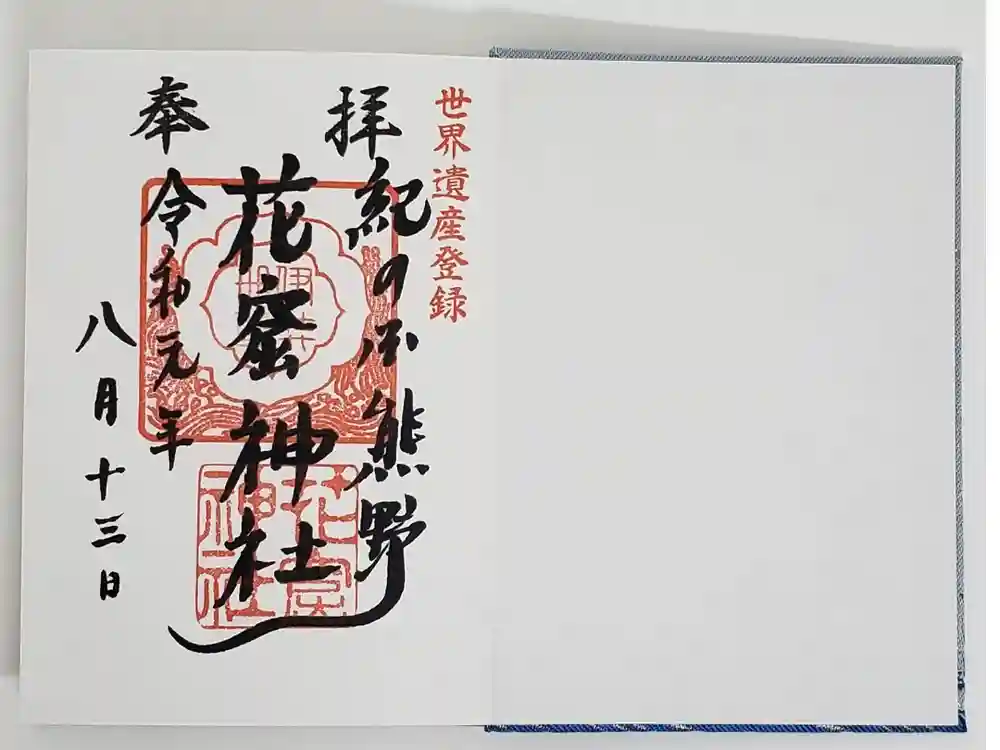 世界遺産登録
奉拝
紀の国熊野
花窟神社
令和元年
八月十三日
花窟
神社